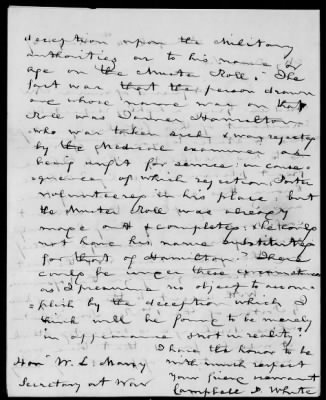 deception upon the Military
authorities as to his name or
age on the Muster Roll. The
fact was that the person drawn
and whose name was on that
Roll was Hamilton
who was taken and was rejected
by the Medical examiner as
being unfit for service in conse-
quence of which rejection,
volunteered in his place; but
the Muster Roll was already
made out & completed. He could
not have his name substituted
for that of Hamilton. There
could be under these circumstances
as I presume no object to accom-
plish by the deception which I
think will be found to be merely
in appearance & not in reality.
I have the honor to be
with much respect
your friend
Campbell P. White
Hon. W. L. Marcy
Secretary at War